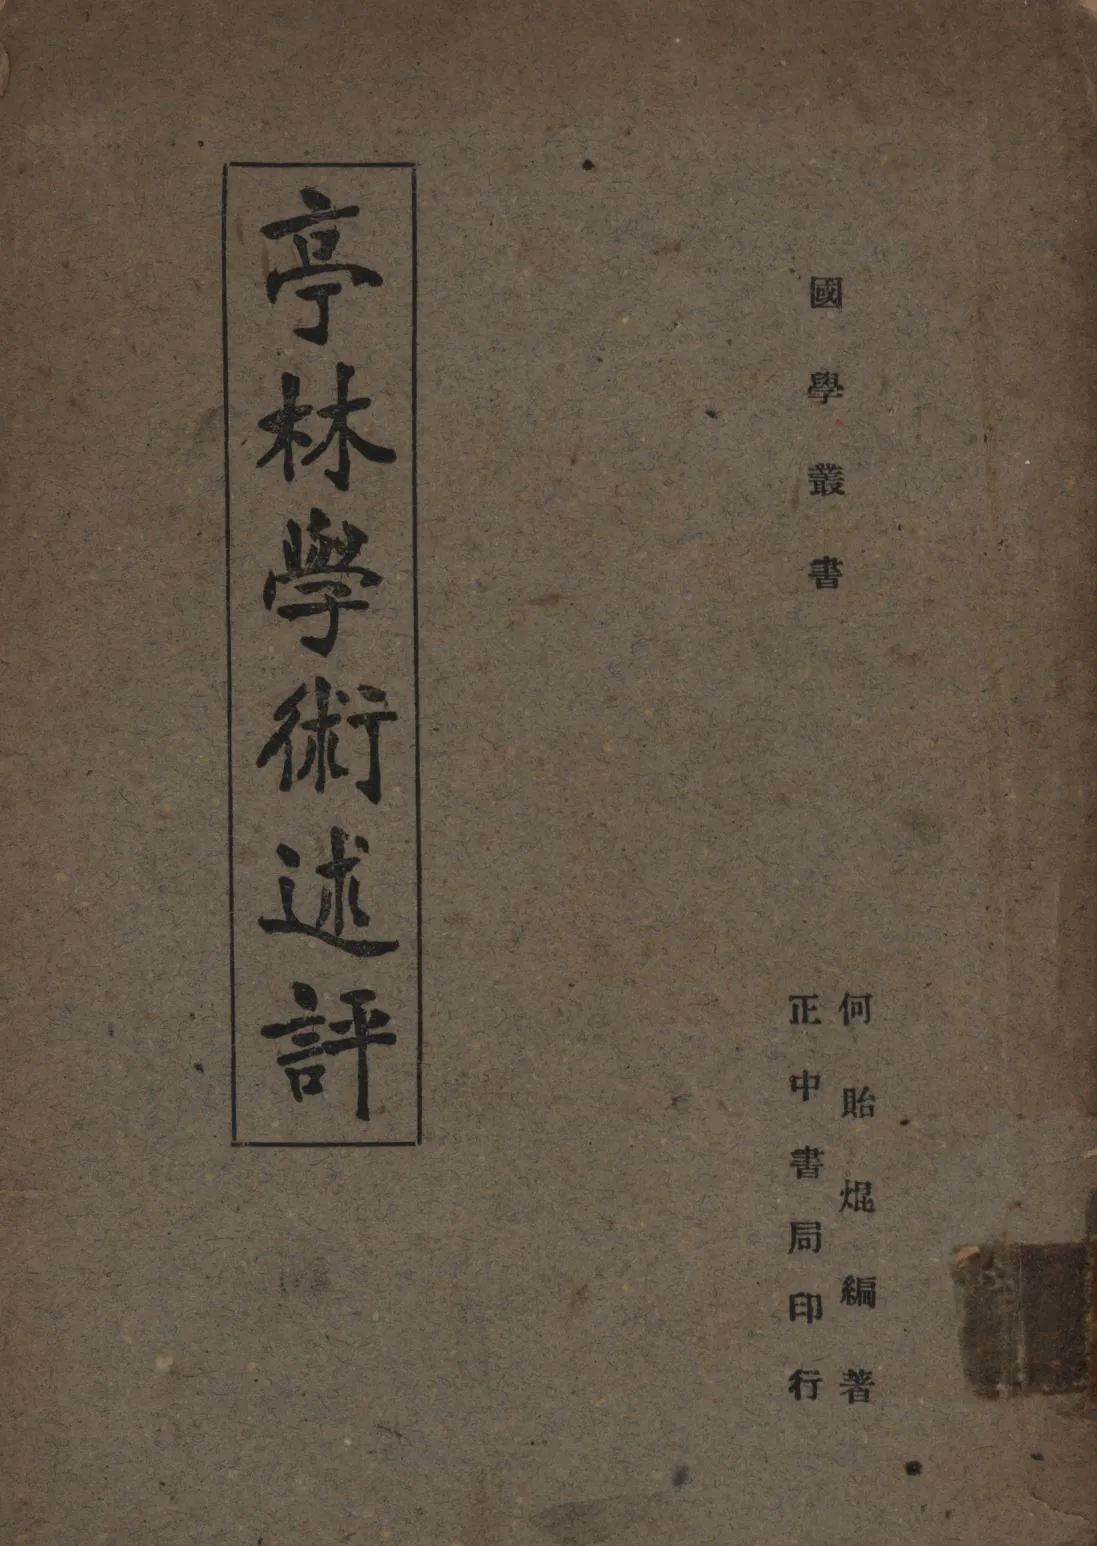 國學叢書
何貽焜編著
正中書局印行
亭林學術述評